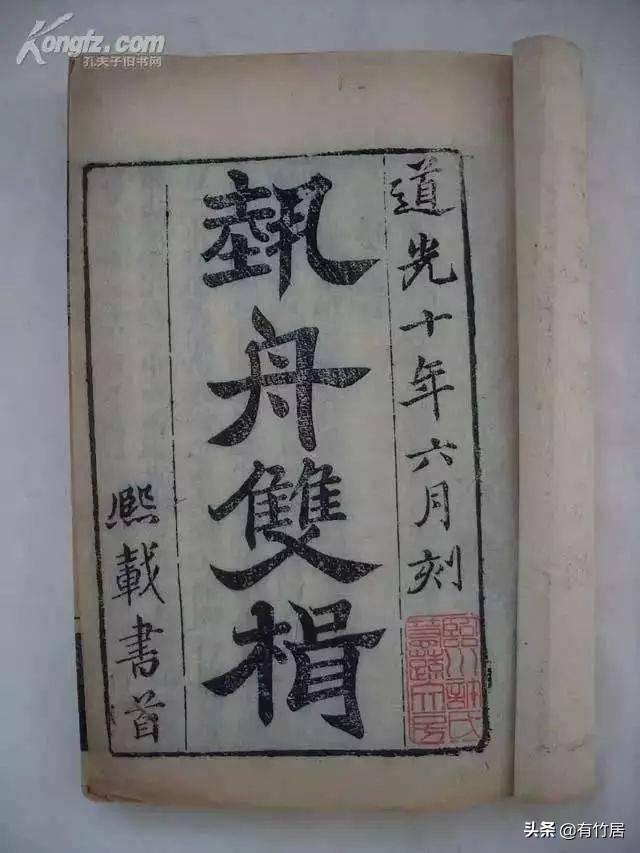 Kongfz.com
孔夫子旧书网
道光十年六月刻
埶舟雙楫
熙載書首
臨川許氏
头条 @有竹居